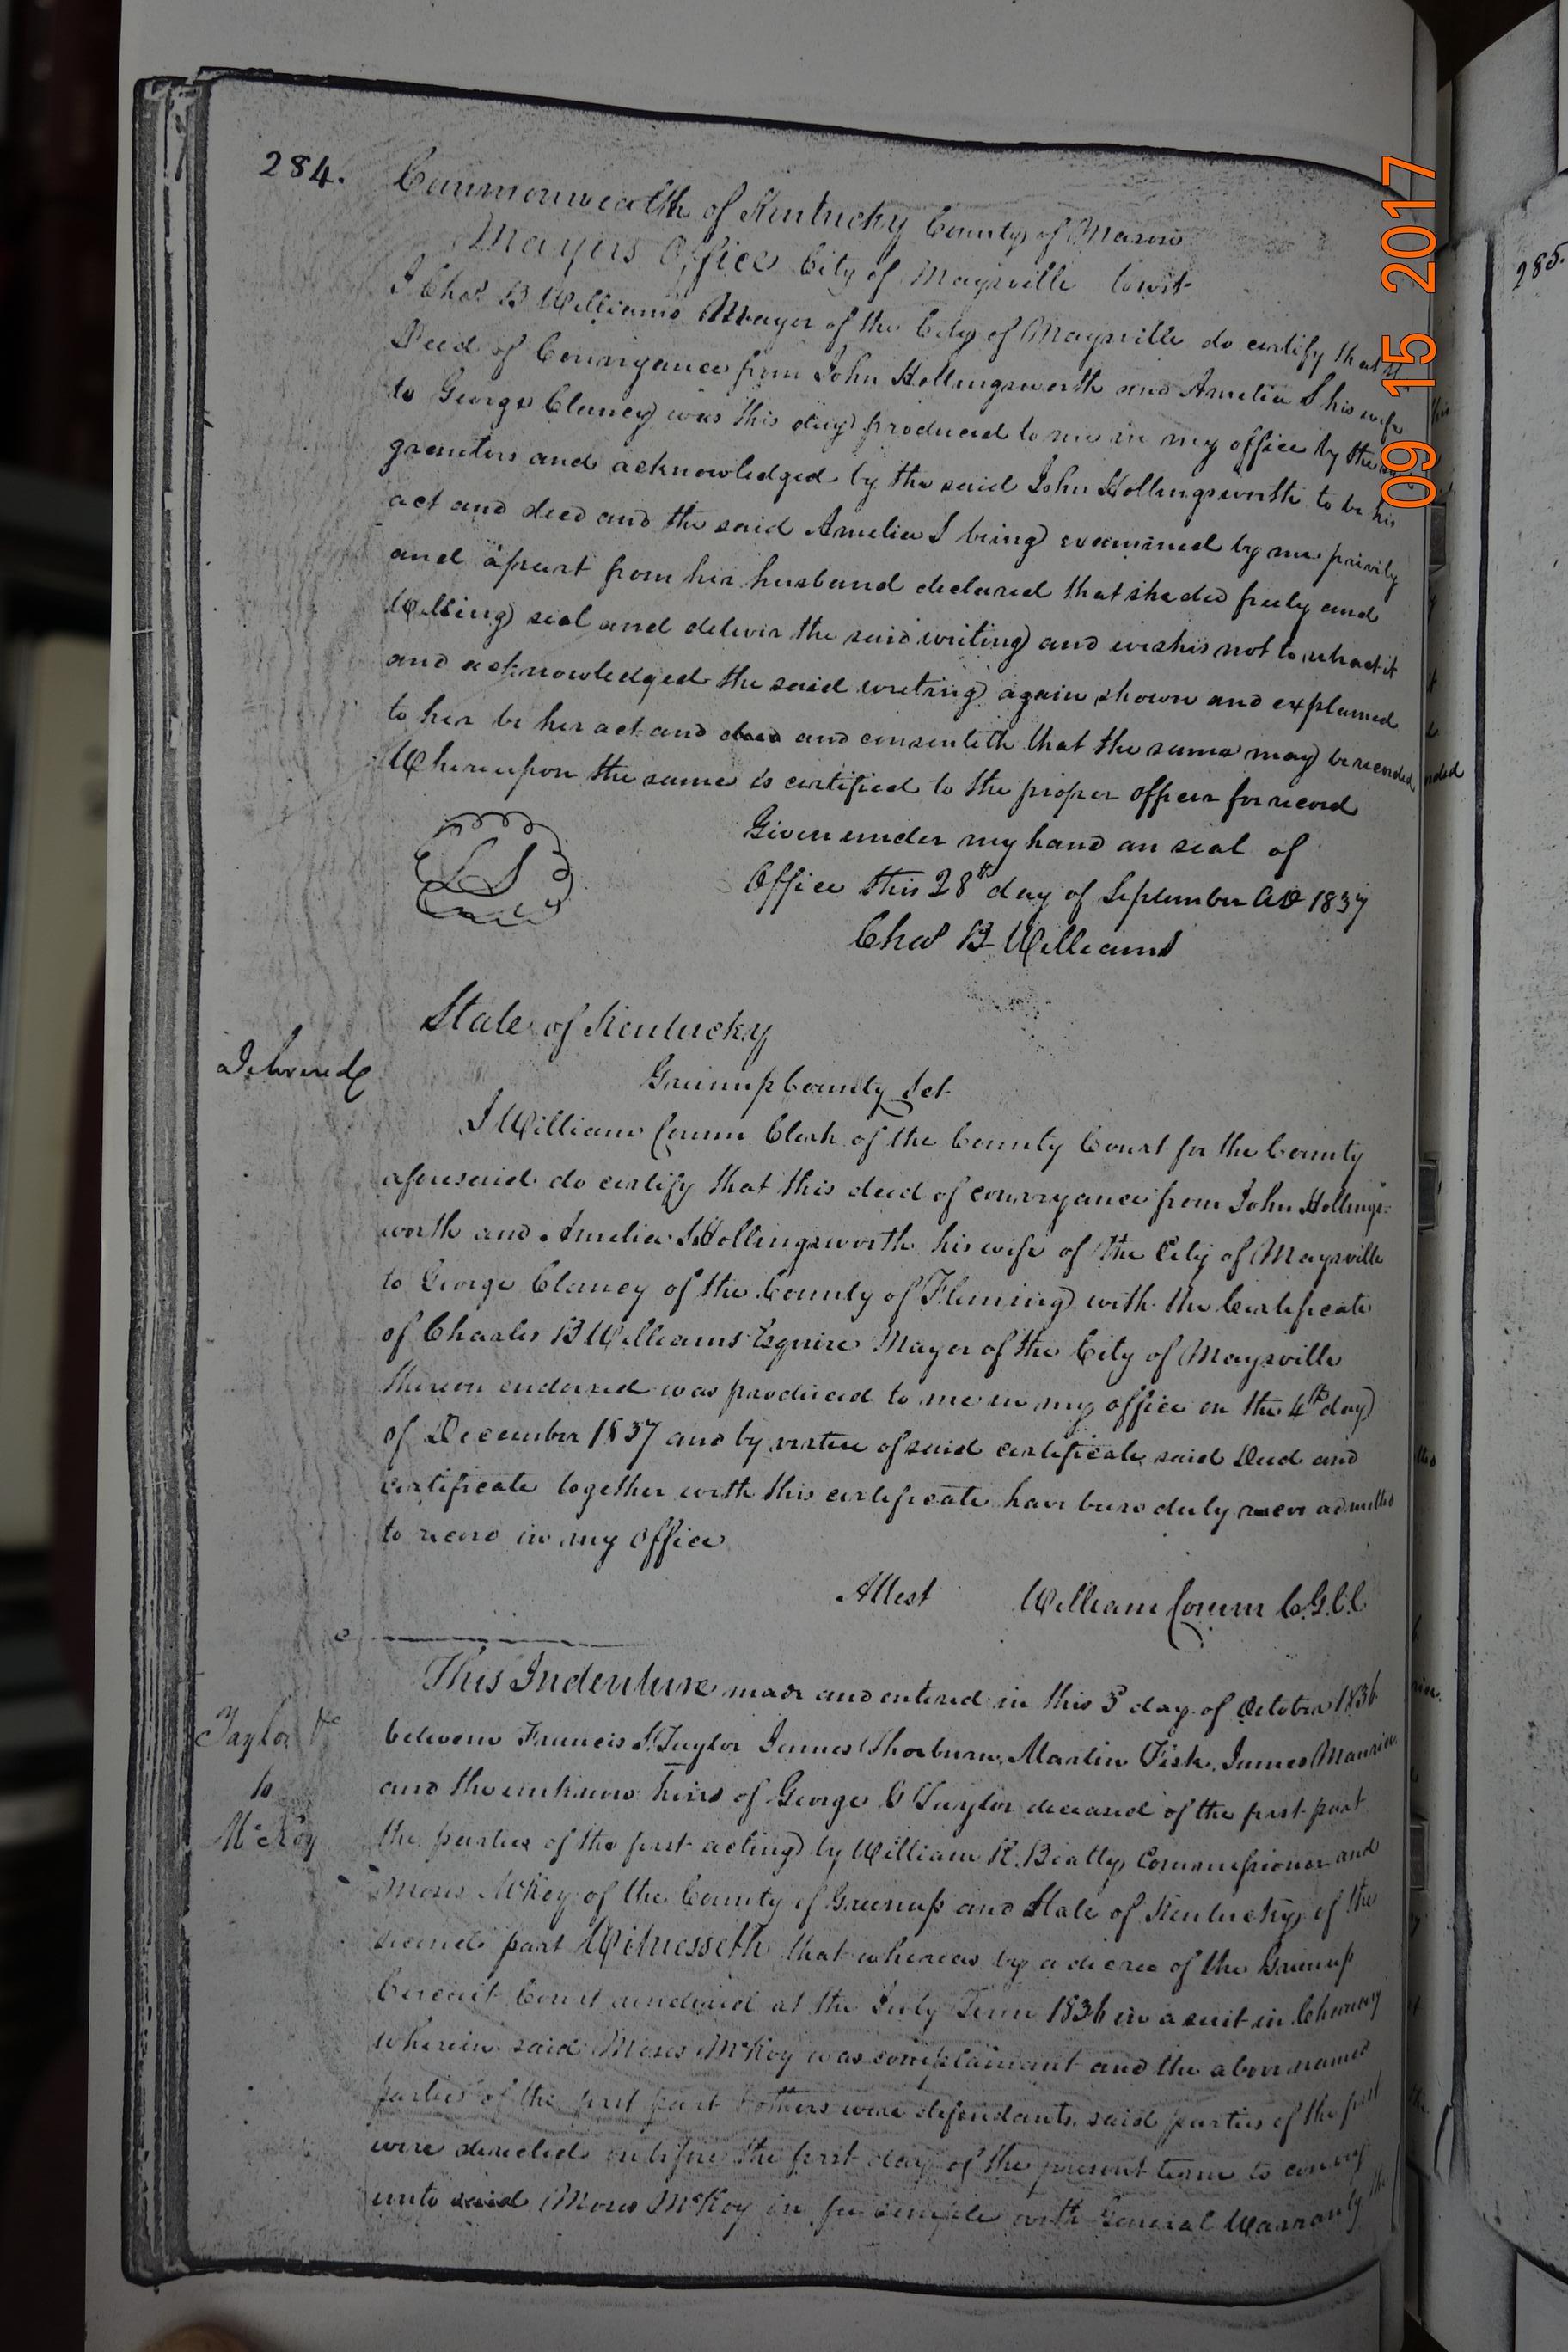 284.
Commonwealth of Kentucky County of Mason
Mayors Office City of Maysville towit
I Chas B Williams Mayor of the City of Maysville do certify that
Deed of Conveyance from John Hollingsworth and Amelia S his wife
to George Clancy was this day produced to me in my office by the
grantors and acknowledged by the said John Hollingsworth to be his
act and deed and the said Amelia S being examined by me privily
and apart from her husband declared that she did freely and
Willing seal and deliver the said writing and wishes not to retract it
and acknowledged the said writing again shown and explained
to her be her act and deed and consenteth that the same may be recorded
Whereupon the same is certified to the proper officer for record
Given under my hand an seal of
Office this 28th day of September AD 1837
L S
Chas B Williams
State of Kentucky
Greenup County Sct
I William Corum Clerk of the County Court for the County
aforesaid do certify that this deed of conveyance from John Hollings-
worth and Amelia S Hollingsworth his wife of the City of Maysville
to George Clancy of the County of Fleming with the Certificate
of Charles B Williams Esquire Mayor of the City of Maysville
thereon endorsed was produced to me in my office on the 4th day
of December 1837 and by virtue of said certificate said Deed and
certificate together with this certificate have been duly admitted
to record in my Office
Attest William Corum C.G.C.C
Taylor &c
to
McKoy
This Indenture made and entered in this 3 day of October 1836
between Francis S. Taylor James Thorburn, Martin Fisk, James
and the unknown heirs of George C Taylor deceased of the first part
the parties of the first acting by William R. Beatty Commissioner and
Moses McKoy of the County of Greenup and State of Kentucky of the
second part Witnesseth that whereas by a decree of the Greenup
Circuit Court rendered at the July Term 1836 in a suit in Chancery
wherein said Moses McKoy was complainant and the above named
parties of the first part & others were defendants, said parties of the first
were directed on before the first day of the present term to convey
unto said Moses McKoy in fee simple with General Warranty the
285.
09 15 2017